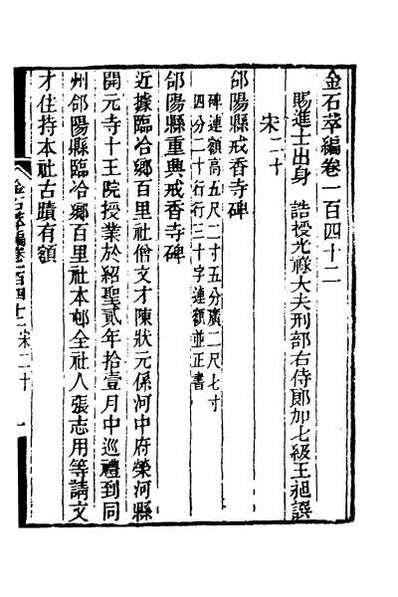 金石萃編卷一百四十二
賜進士出身 誥授光祿大夫刑部右侍郎加七級王昶譔
宋二十
郃陽縣戒香寺碑
碑連額高五尺二寸五分廣二尺七寸
四分二十行行三十字連額並正書
郃陽縣重興戒香寺碑
近據臨洽鄉百里社僧文才陳狀元係河中府榮河縣
開元寺十王院授業於紹聖貳年拾壹月中巡禮到同
州郃陽縣臨洽鄉百里社本邨全社人張志用等請文
才住持本社古蹟有額
金石萃編卷一百四十二 宋二十 一